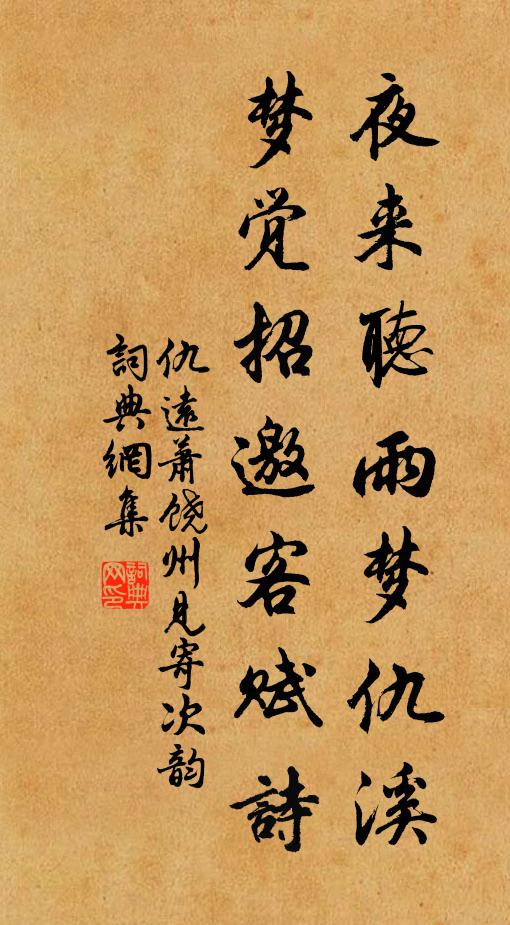 夜来聽雨梦仇溪
梦觉招邀客赋詩
仇遠萧饶州见寄次韵
詞典網集
詞典网印